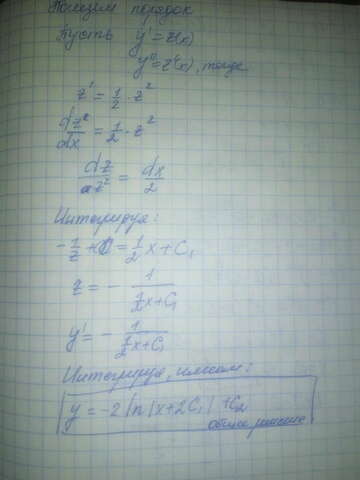 Понизим порядок
Пусть y' = z(x)
y'' = z'(x), тогда
z' = 1/2 · z²
dz/dx = 1/2 · z²
dz/z² = dx/2
Интегрируя:
-1/z = 1/2 x + C₁
z = - 1/(1/2 x + C₁)
y' = - 1/(1/2 x + C₁)
Интегрируя, имеем:
y = -2 ln |x + 2C₁| + C₂
общее решение